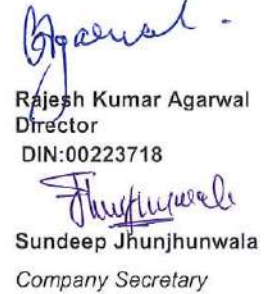 Agarwal.
Rajesh Kumar Agarwal
Director
DIN:00223718
Jhunjhunwala
Sundeep Jhunjhunwala
Company Secretary